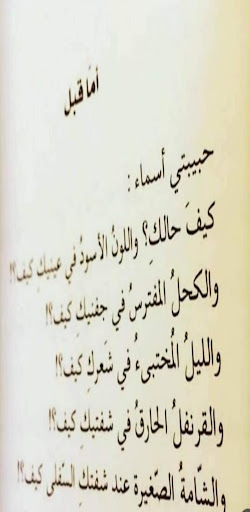 أمّا قبل
حبيبتي أسماء :
كيفَ حالكِ؟ واللونُ الأسودُ في عينيكِ كيف؟!
والكحلُ المفترسُ في جفنيكِ كيف؟!
والليلُ المُختبىءُ في شَعركِ كيف؟!
والقرنفلُ الحارقُ في شفتيكِ كيف؟!
والشّامةُ الصّغيرة عند شفتكِ السّفلى كيف؟!